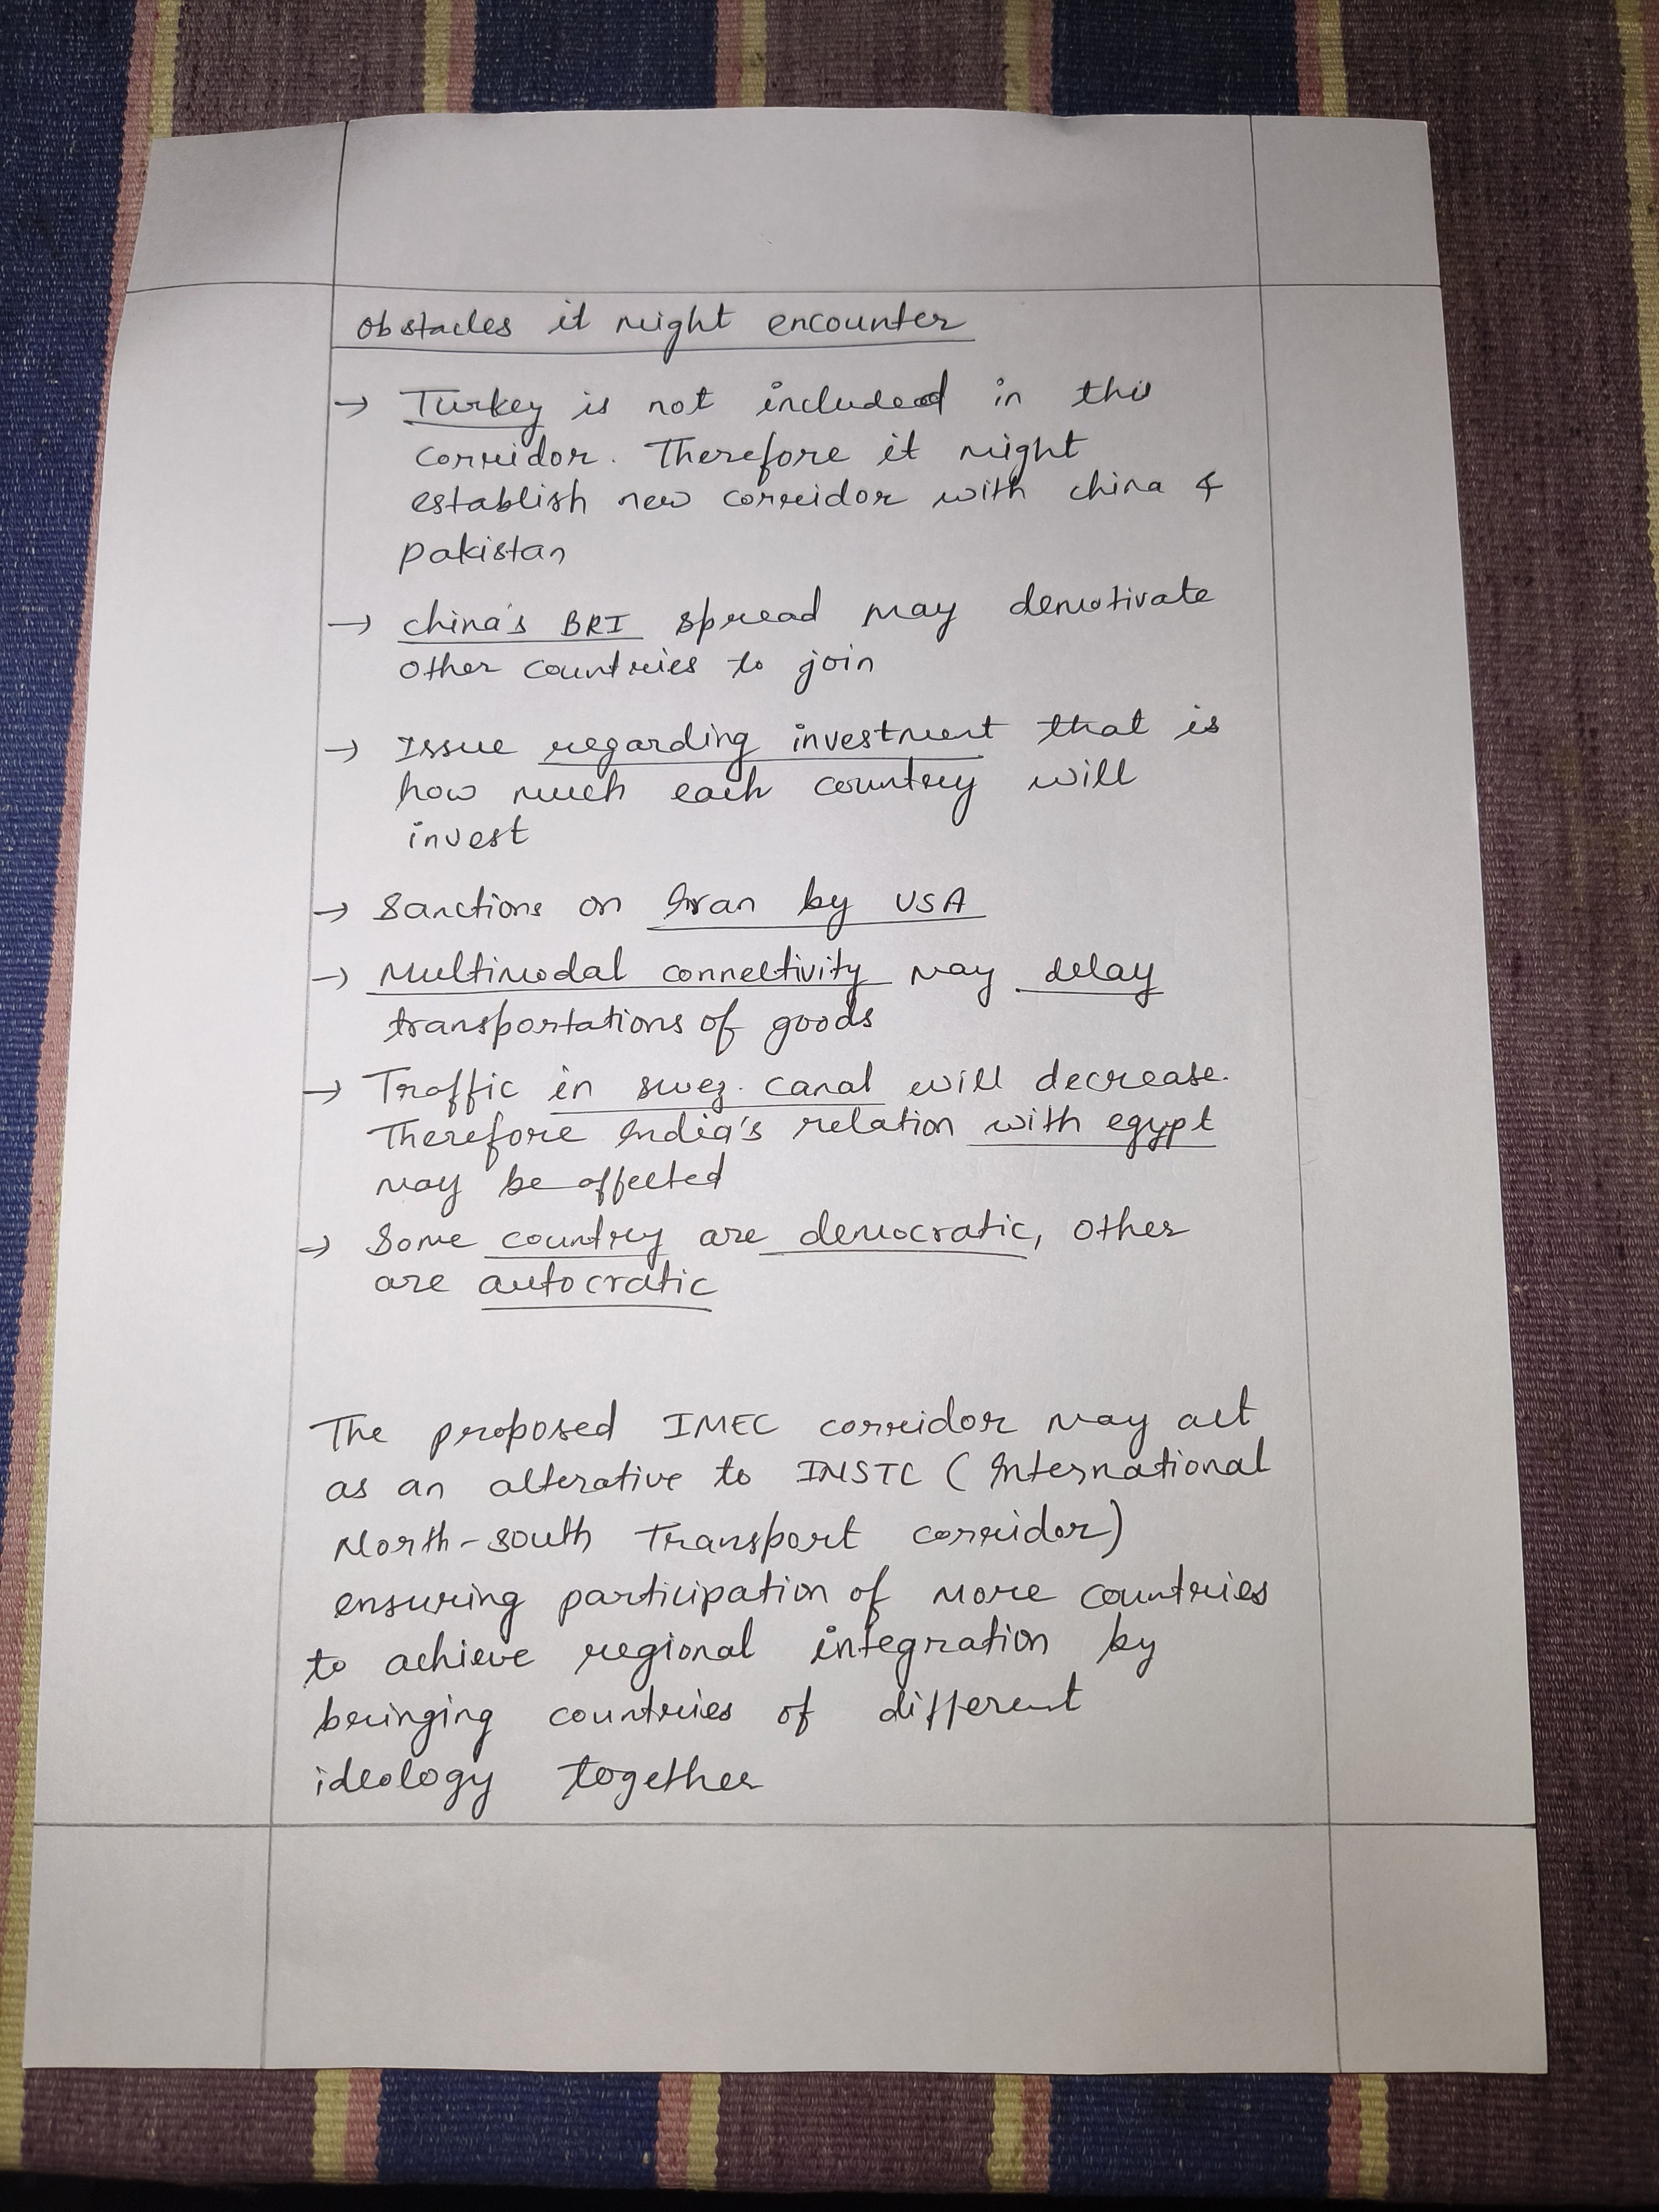 Obstacles it might encounter
→ Turkey is not included in this
corridor. Therefore it might
establish new corridor with china &
pakistan
→ china's BRI spread may demotivate
other countries to join
→ Issue regarding investment that is
how much each country will
invest
→ Sanctions on Iran by USA
→ Multimodal connectivity may delay
transportations of goods
→ Traffic in suez canal will decrease.
Therefore India's relation with egypt
may be affected
→ Some country are democratic, other
are autocratic
The proposed IMEC corridor may act
as an alterative to INSTC (International
North-South Transport corridor)
ensuring participation of more countries
to achieve regional integration by
bringing countries of different
ideology together